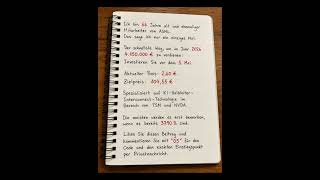 Ich bin 66 Jahre alt und ehemaliger
Mitarbeiter von ASML.
Das sage ich nur ein einziges Mal.
Der schnellste Weg, um im Jahr 2026
4.150.000 € zu verdienen:
Investieren Sie vor dem 5. Mai.
Aktueller Preis: 2,60 €
Zielpreis: 104,55 €
Spezialisiert auf KI-Halbleiter-
Interconnect-Technologie im
Bereich von TSM und NVDA.
Die meisten werden es erst bemerken,
wenn es bereits 3790 % sind.
Liken Sie diesen Beitrag und
kommentieren Sie mit "05" für den
Code und den exakten Einstiegspunkt
per Privatnachricht.